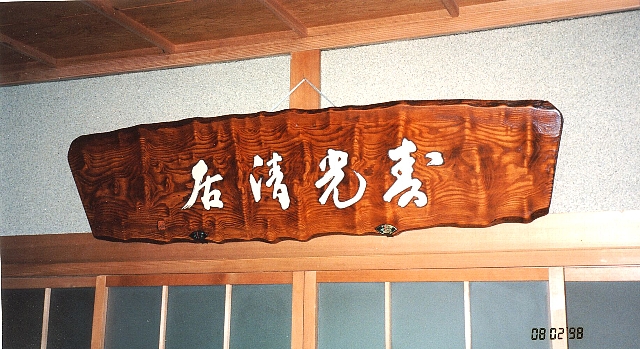 寿光清居
08 02 '98